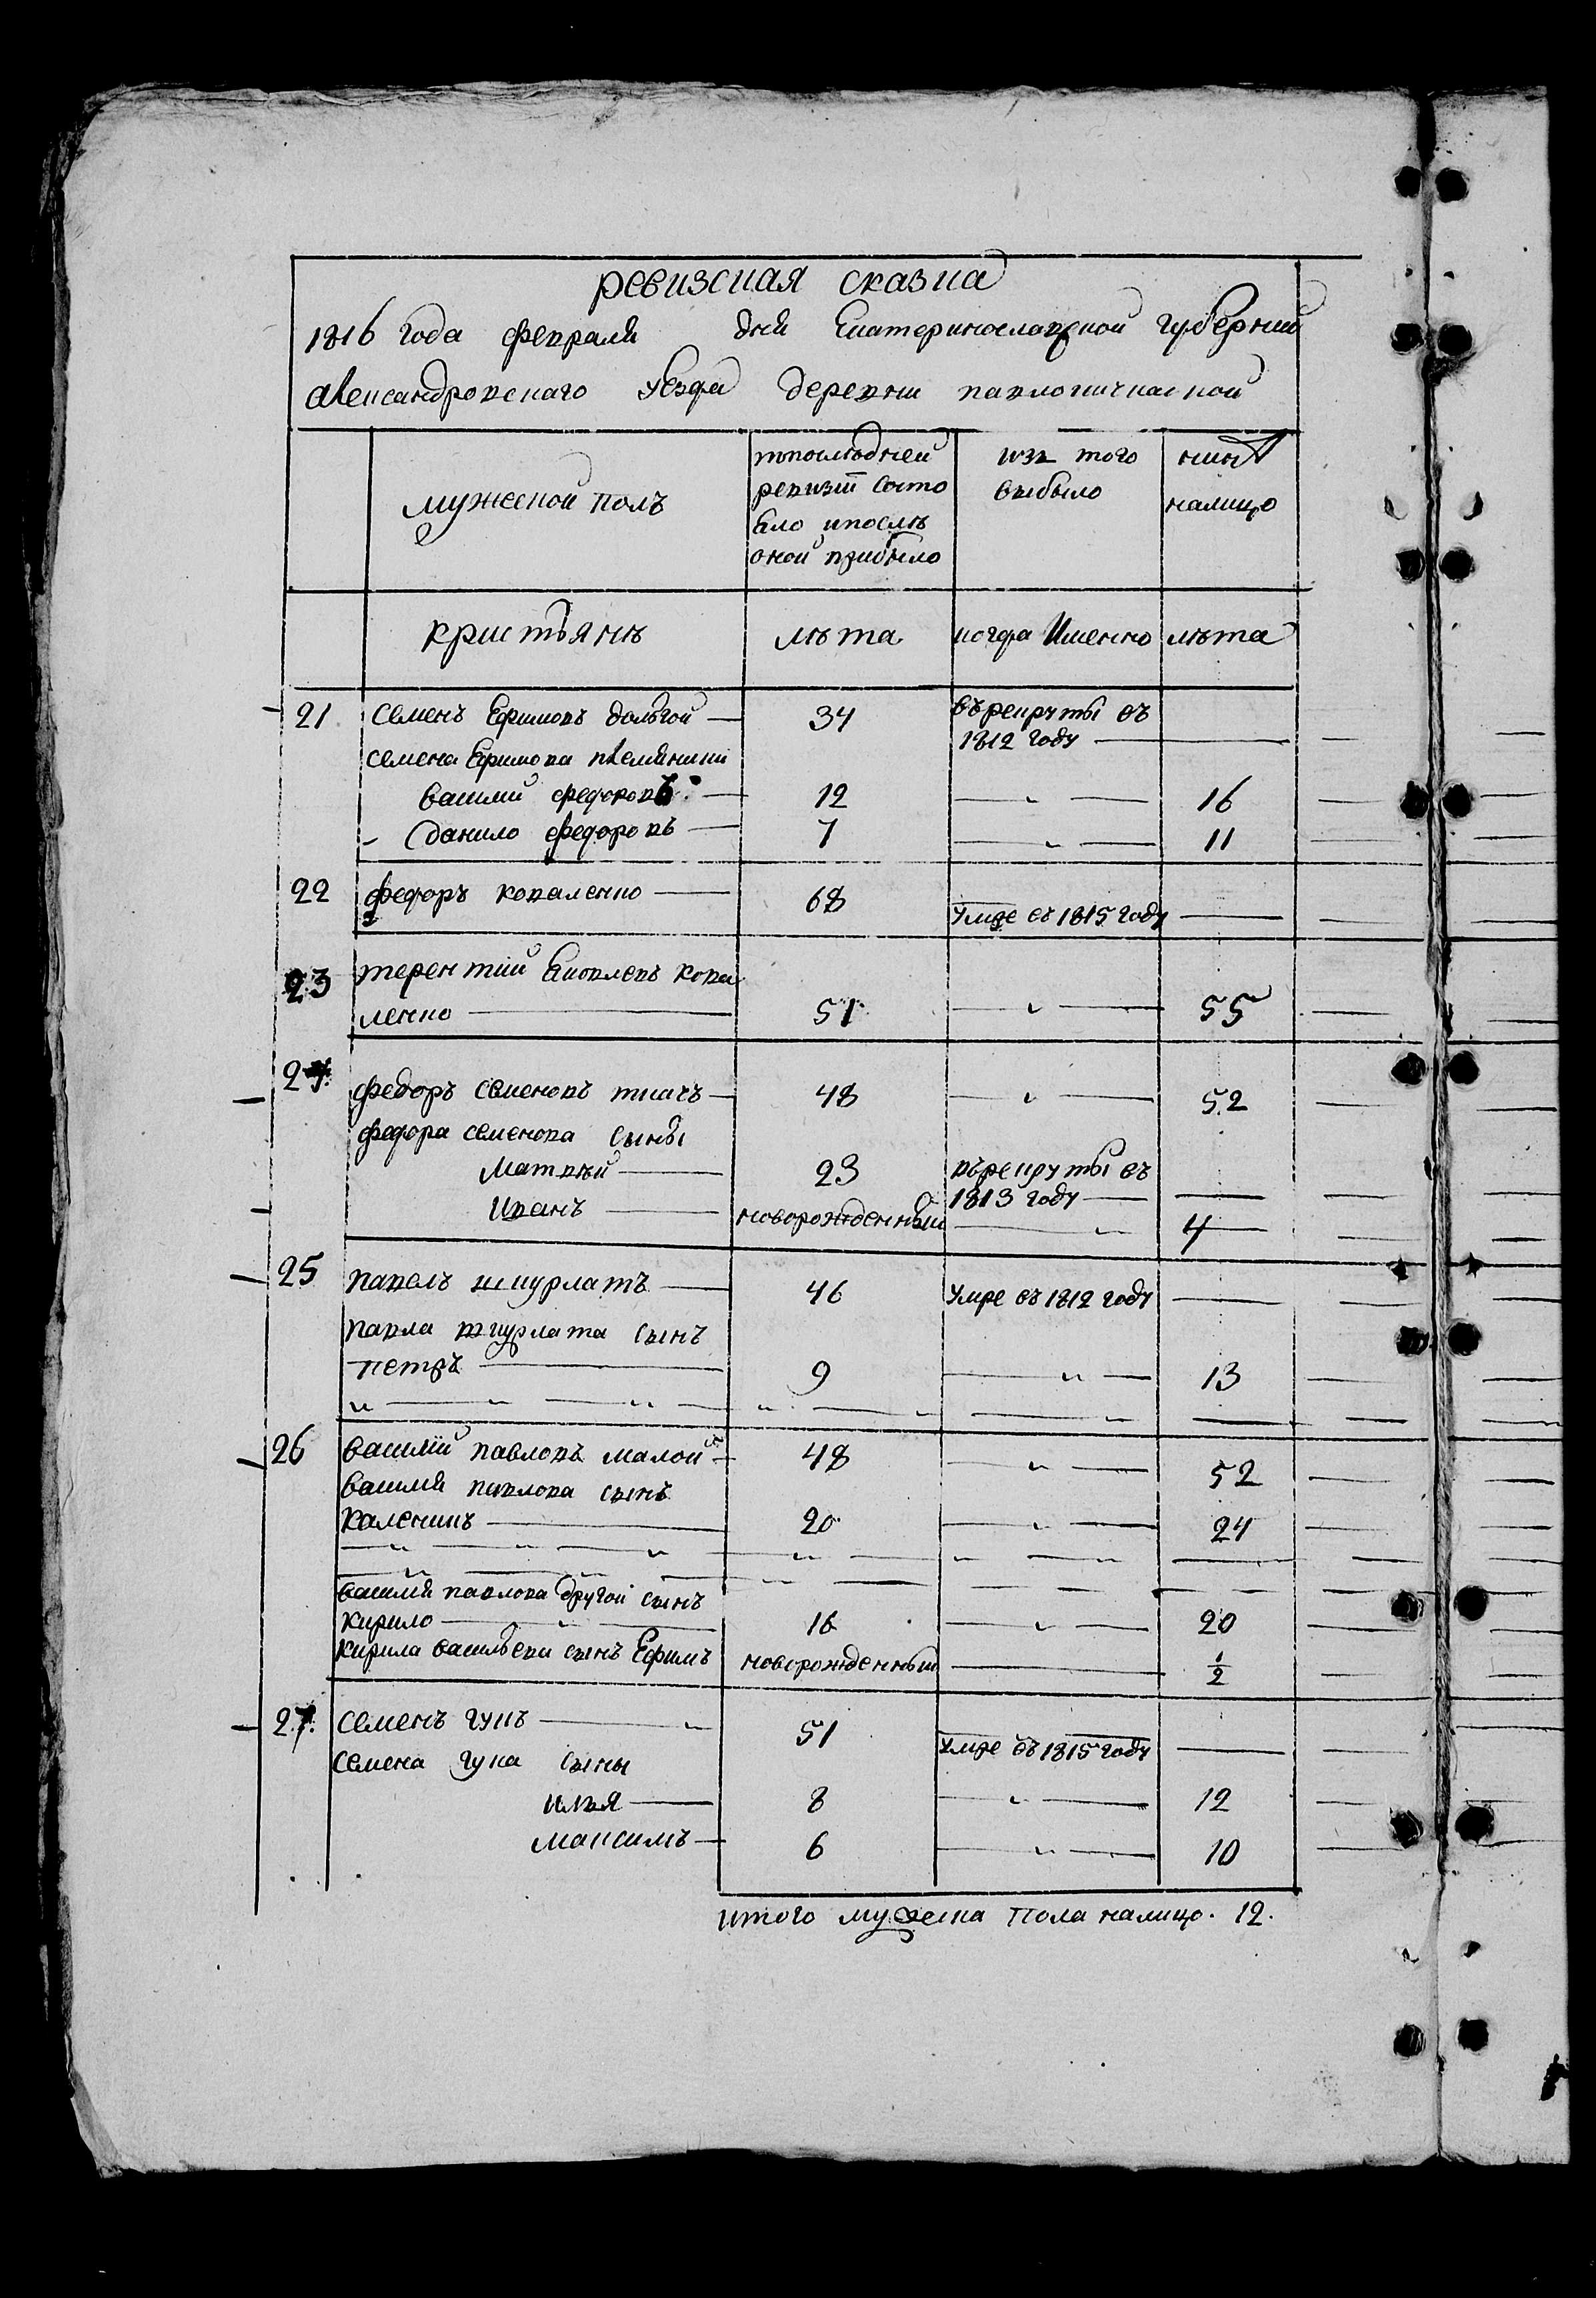 ревизская сказка
1816 года февраля дня Екатеринославской губернии
александровского уезда деревни павлокичкаской
мужеской полъ
попоследней
ревизіи состо
яло ипослѣ
оной прибыло
изъ того
выбыло
нынѣ
налицо
кристьянъ
лѣта
когда Именно
лѣта
21 Семенъ Ефимовъ долгой 34 въ рекруты въ
1812 году
семена Ефимова племяники
василий федоровъ 12 " 16
данило федоровъ 7 " 11
22 федоръ коваленко 68 умре въ 1815 году
23 терентий Яковлевъ кова
ленко 51 " 55
24 федоръ семеновъ ткачъ 48 " 52
федора семенова сыны
Матвѣй 23 въ рекруты въ
1813 году
Иванъ новорожденный " 4
25 павелъ шкурлатъ 46 умре въ 1812 году
павла шкурлата сынъ
петръ 9 " 13
26 василий павловъ малой 48 " 52
василя павлова сынъ
каленикъ 20 " 24
василя павлова другой сынъ
кирило 16 " 20
кирила васильева сынъ Ефимъ новорожденный 1/2
27. семенъ гукъ 51 умре въ 1815 году
семена гука сыны
илья 8 " 12
максимъ 6 " 10
итого мужеска пола налицо. 12.